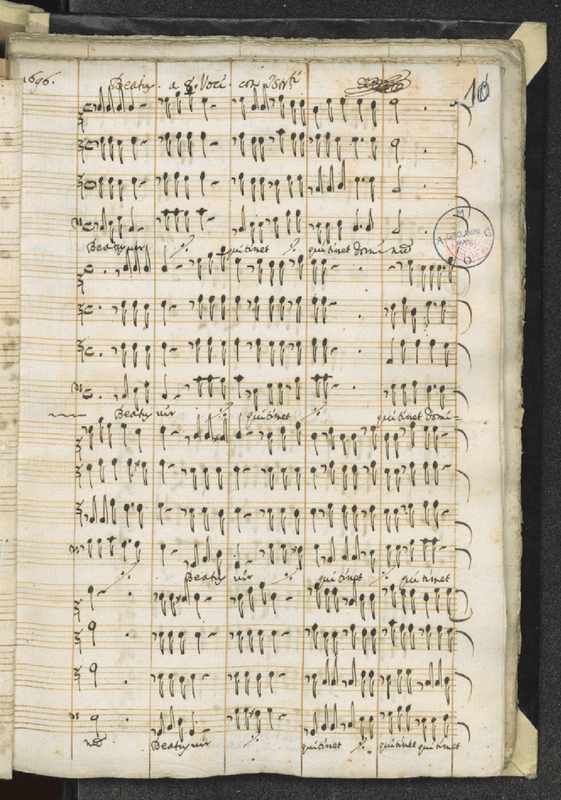 1696. Beatus a 8. Voci con Istrti
10
Beatus vir qui timet qui timet domi- num
Beatus vir qui timet qui timet domi-
Beatus vir qui timet qui timet
num Beatus vir qui timet qui timet qui timet